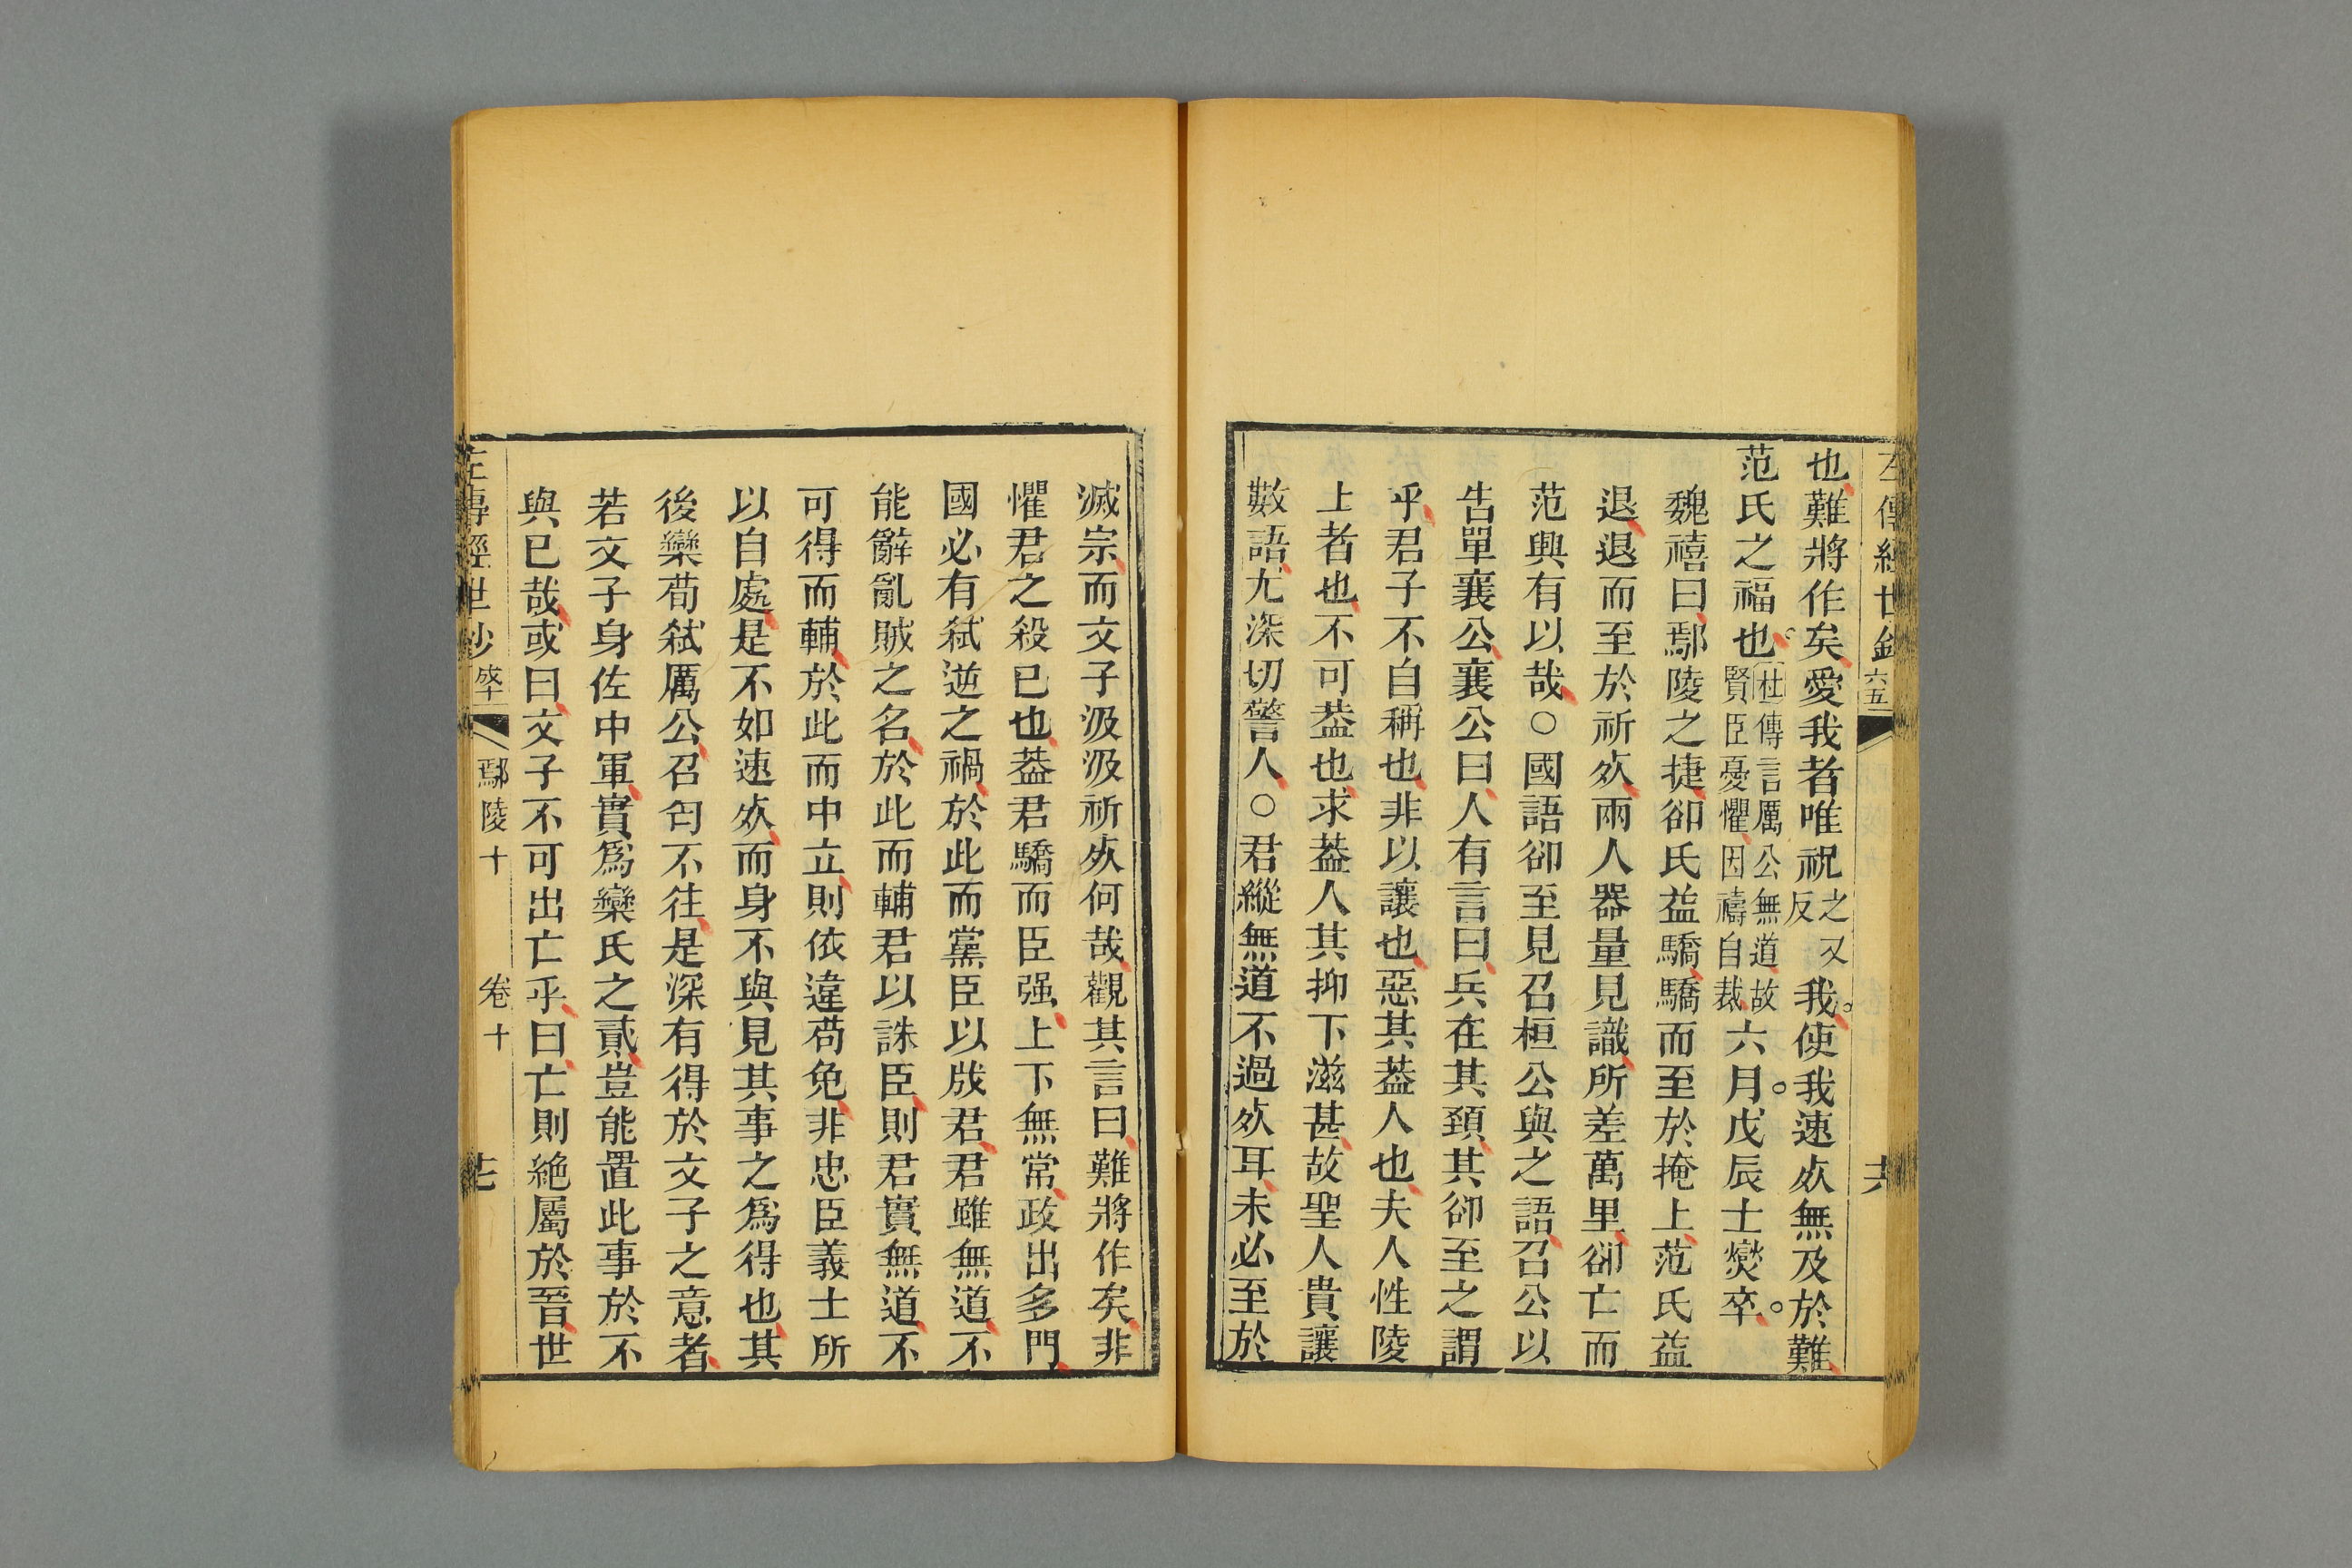 左傳經世鈔
六五
六
也難將作矣愛我者唯祝之又反我使我速死無及於難
范氏之福也杜傳言厲公無道故賢臣憂懼因禱自裁六月戊辰士燮卒
魏禧曰鄢陵之捷郤氏益驕驕而至於掩上范氏益
退退而至於祈死兩人器量見識所差萬里郤亡而
范興有以哉○國語郤至見召桓公與之語召公以
告單襄公襄公曰人有言曰兵在其頸其郤至之謂
乎君子不自稱也非以讓也惡其葢人也夫人性陵
上者也不可葢也求葢人其抑下滋甚故聖人貴讓
數語尤深切警人○君縱無道不過死耳未必至於
滅宗而文子汲汲祈死何哉觀其言曰難將作矣非
懼君之殺已也葢君驕而臣强上下無常政出多門
國必有弑逆之禍於此而黨臣以戕君君雖無道不
能辭亂賊之名於此而輔君以誅臣則君實無道不
可得而輔於此而中立則依違苟免非忠臣義士所
以自處是不如速死而身不與見其事之爲得也其
後欒荀弑厲公召匄不往是深有得於文子之意者
若文子身佐中軍實爲欒氏之貳豈能置此事於不
與已哉或曰文子不可出亡乎曰亡則絶屬於晉世
左傳經世鈔
鄢陵十
卷十